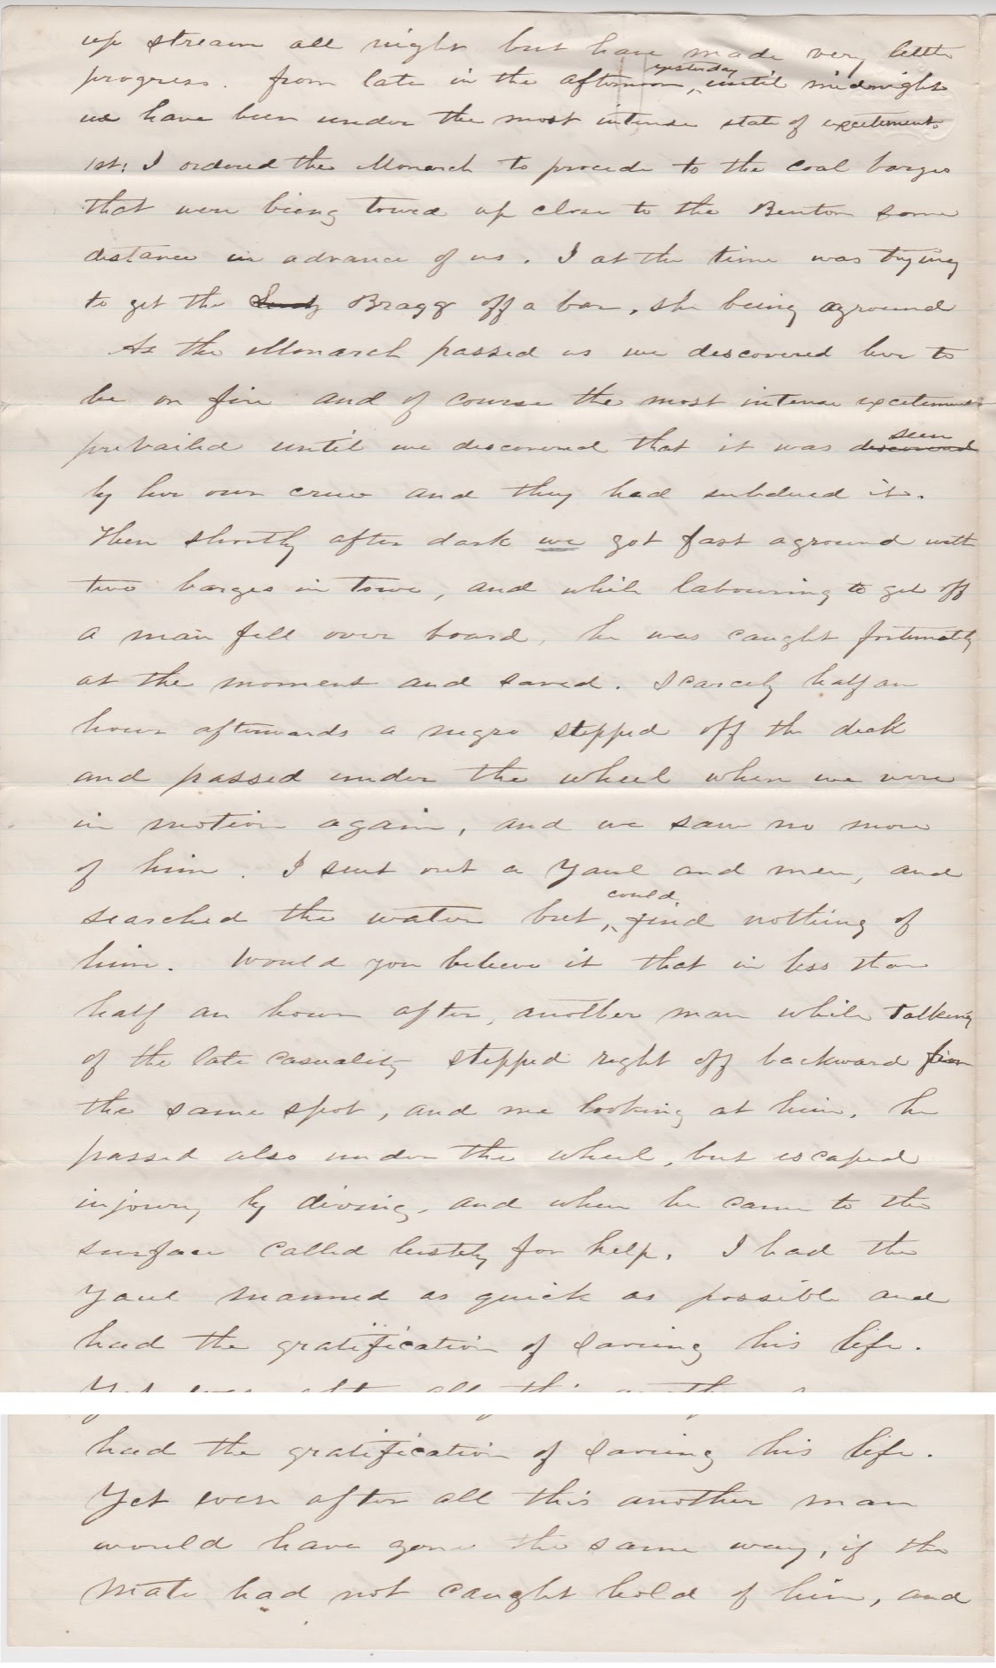 up stream all night but have made very little
progress. from late in the afternoon, yesterday until midnight
we have been under the most intense state of excitement.
1st; I ordered the Monarch to procede to the coal barges
that were being towed up close to the Benton some
distance in advance of us. I at the time was trying
to get the Bragg off a bar, she being aground
As the Monarch passed us we discovered her to
be on fire and of course the most intense excitement
prevailed until we discovered that it was discovered seen
by her own crew and they had subdued it.
Then shortly after dark we got fast aground with
two barges in towe, and while labouring to get off
a man fell over board, he was caught fortunately
at the moment and saved. Scarcely half an
hour afterwards a negro stepped off the deck
and passed under the wheel when we were
in motion again, and we saw no more
of him. I sent out a yaul and men, and
searched the water but, could find nothing of
him. Would you believe it that in less than
half an hour after, another man while talking
of the late casuality stepped right off backward from
the same spot, and me looking at him. he
passed also under the wheel, but escaped
injoury by diving, and when he came to the
surface called lustely for help. I had the
yaul manned as quick as possible and
had the gratification of saving his life.
Yet even after all this another man
had the gratification of saving his life.
Yet even after all this another man
would have gone the same way, if the
mate had not caught hold of him, and